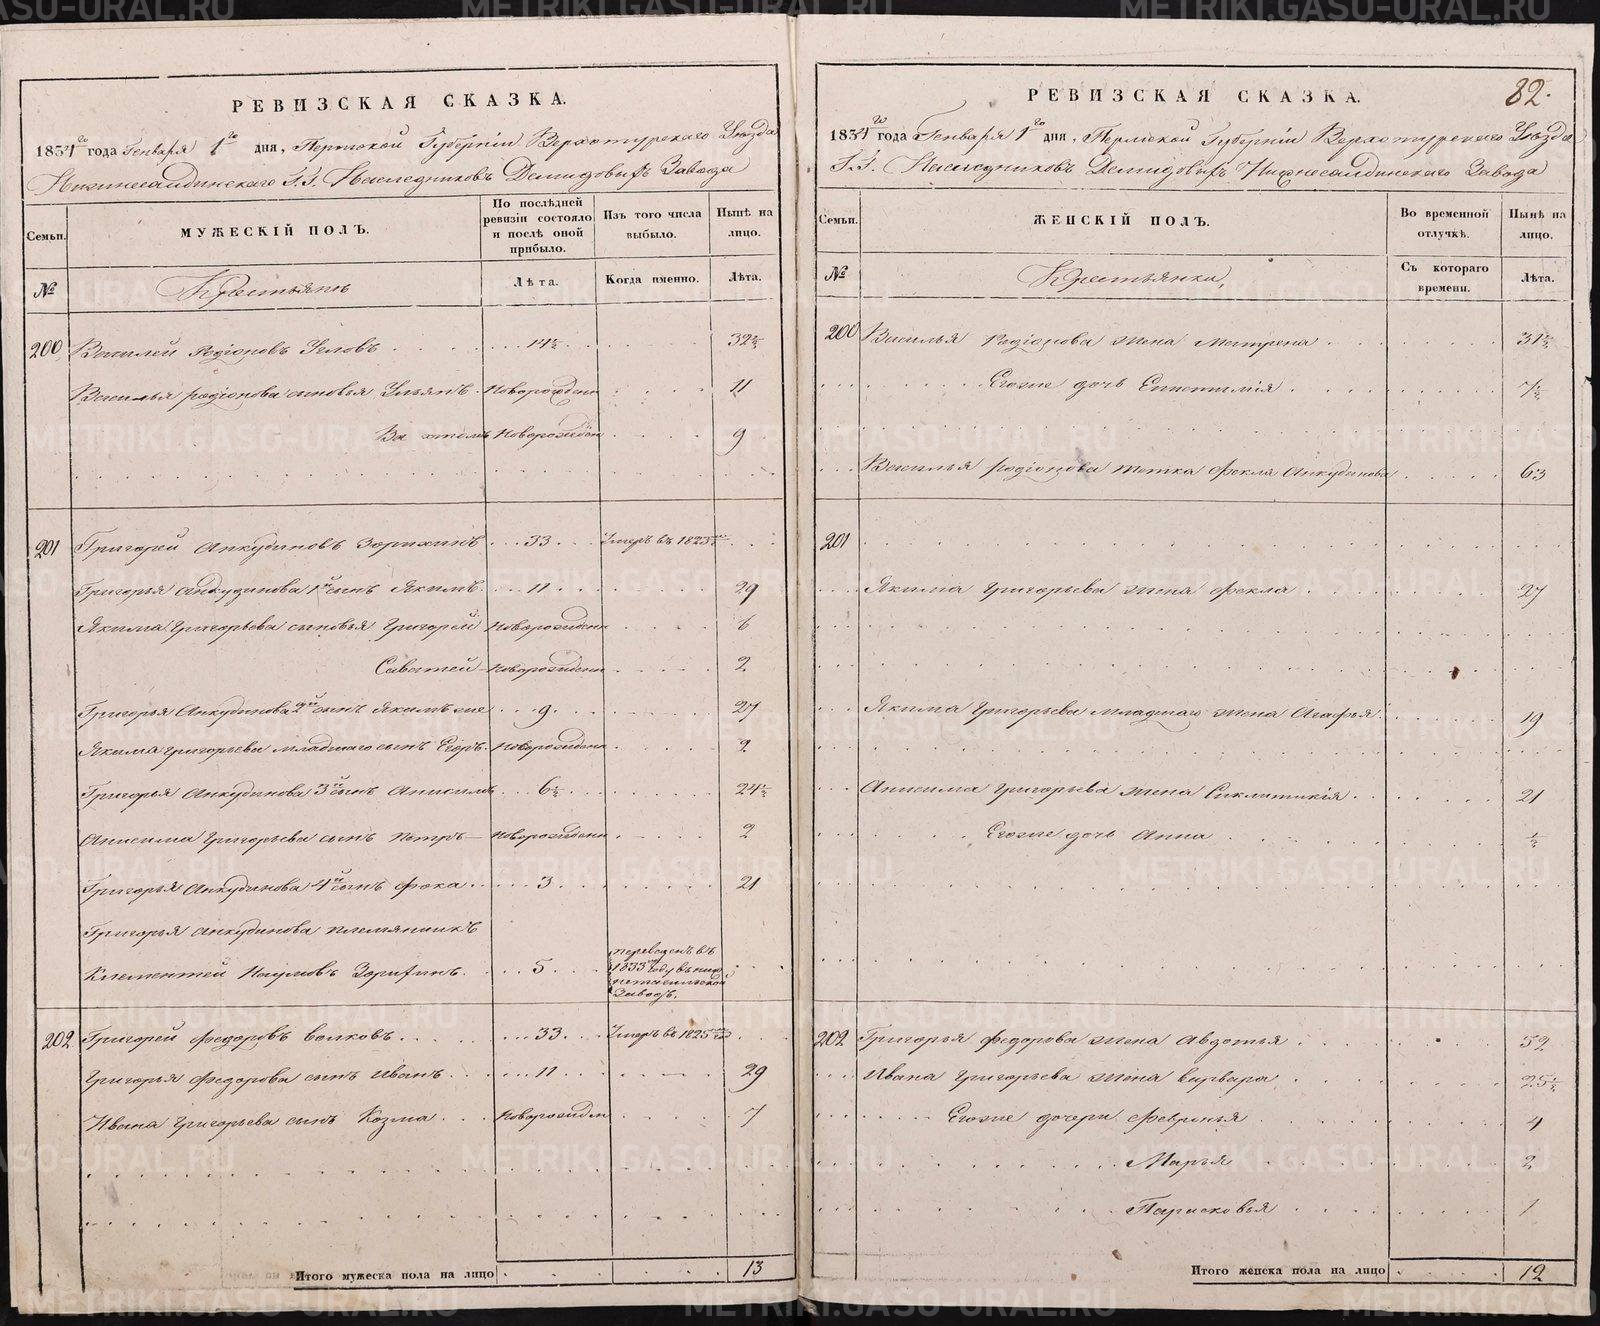 РЕВИЗСКАЯ СКАЗКА.
1834го года Генваря 1го дня, Пермской Губернiи Верхотурскаго Уѣзда
Нижнесалдинскаго Г.Г. Наслѣдниковъ Демидовыхъ Завода
Семьи.
МУЖЕСКIЙ ПОЛЪ.
По послѣдней ревизiи состояло и послѣ оной прибыло.
Изъ того числа выбыло.
Нынѣ на лицо.
№
Крестьянъ
Лѣта.
Когда именно.
Лѣта.
200 Василей Родiоновъ 14½ 32½
Василья родiонова сыновья Ульянъ Новорожден 11
Новорожден 9
201 Григорей Анкудиновъ Зорихинъ 33 Умеръ въ 1823
Григорья Анкудинова 1й сынъ Якимъ 11 29
Якима Григорьева сыновья Григорей Новорожден 6
Саватей Новорожден 2
Григорья Анкудинова 2й сынъ Якимъ же 9 27
Якима Григорьева младшаго сынъ Егоръ Новорожден 2
Григорья Анкудинова 3й сынъ Анисимъ 6½ 24½
Анисима Григорьева сынъ Петръ Новорожден 2
Григорья Анкудинова 4й сынъ Фока 3 21
Григорья Анкудинова племянникъ
Клементей Наумовъ Зорихинъ 5 переведенъ въ 1833 году въ заводъ.
202 Григорей Федоровъ Волковъ 33 Умеръ въ 1825
Григорья Федорова сынъ Иванъ 11 29
Ивана Григорьева сынъ Козма Новорожден 7
Итого мужеска пола на лицо 13
82.
РЕВИЗСКАЯ СКАЗКА.
1834го года Генваря 1го дня, Пермской Губернiи Верхотурскаго Уѣзда
Г.Г. Наслѣдниковъ Демидовыхъ Нижнесалдинскаго Завода
Семьи.
ЖЕНСКIЙ ПОЛЪ.
Во временной отлучкѣ.
Нынѣ на лицо.
№
Крестьянки,
Съ котораго времени.
Лѣта.
200 Василья Родiонова жена Матрена 31½
Егоже дочь Епистимiя 7½
Василья родiонова тетка Фекла Анкудинова 63
201
Якима Григорьева жена Фекла 27
Якима Григорьева младшаго жена Агафья 19
Анисима Григорьева жена Сиклитикiя 21
Егоже дочь Анна ½
202 Григорья Федорова жена Авдотья 52
Ивана Григорьева жена Варвара 25½
Егоже дочери Февронья 4
Марья 2
Парасковья 1
Итого женска пола на лицо 12
METRIKI.GASO-URAL.RU